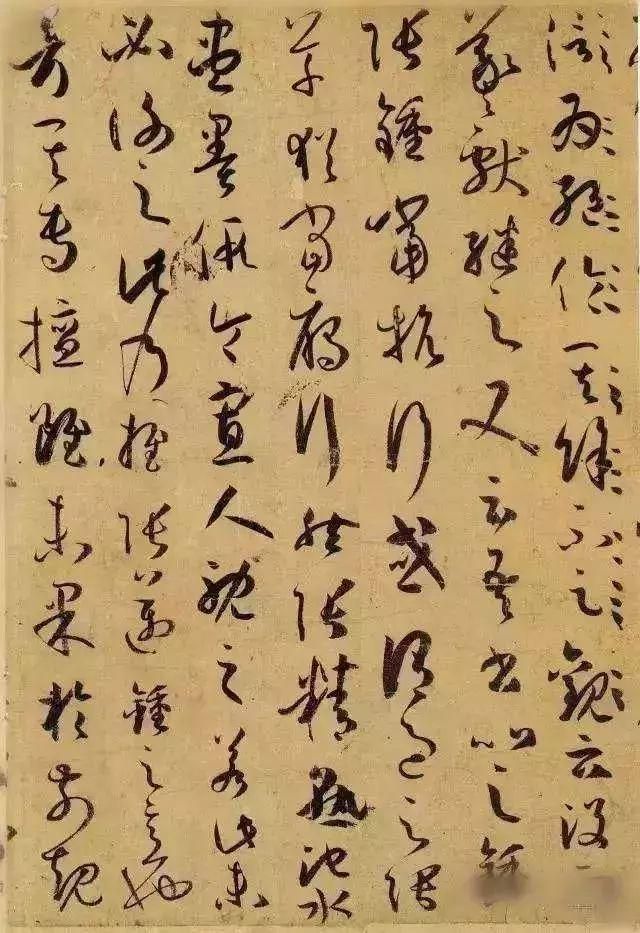 為絕倫其餘不足觀云沒
羲獻繼之又云吾書比之鍾
張鍾當抗行或謂過之張
草猶當鴈行然張精熟池水
盡墨假令寡人耽之若此未
必謝之此乃推張邁鍾之意也
考其專擅雖未果於前規